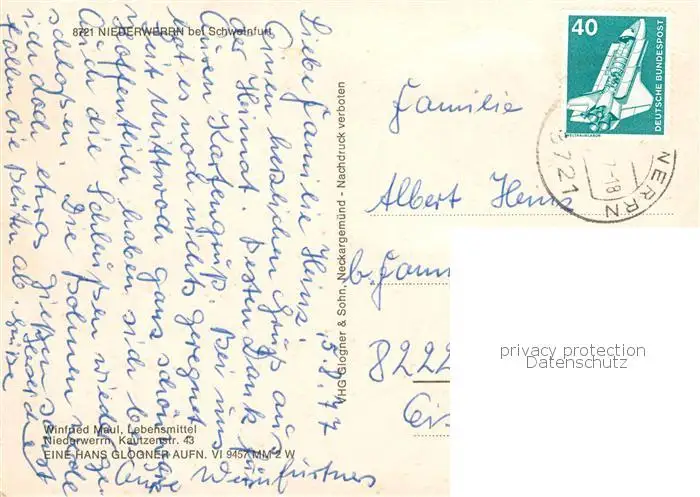 8721 NIEDERWERRN bei Schweinfurt
Liebe Familie Heins! 5.8.77
Einen herzlichen Gruß aus
der Heimat. Besten Dank für
Euren Kartengruß. Bei uns
hat es noch nichts geregnet
seit Mittwoch ganz schön
Hoffentlich haben sich bei
Euch die Schleußen wieder ge-
schloßen. Die Bohnen
sich doch etwas gießen sonst
fallen die Blüten ab. Grüße
Winfried Maul, Lebensmittel
Niederwerrn, Kautzenstr. 43
EINE HANS GLOGNER AUFN. VI 9457 MM 2 W
VHG Glogner & Sohn, Neckargemünd - Nachdruck verboten
40
DEUTSCHE BUNDESPOST
WELTRAUMLABOR
8721
NERRN
-18
Familie
Albert Heins
b. Fam
8222
privacy protection
Datenschutz